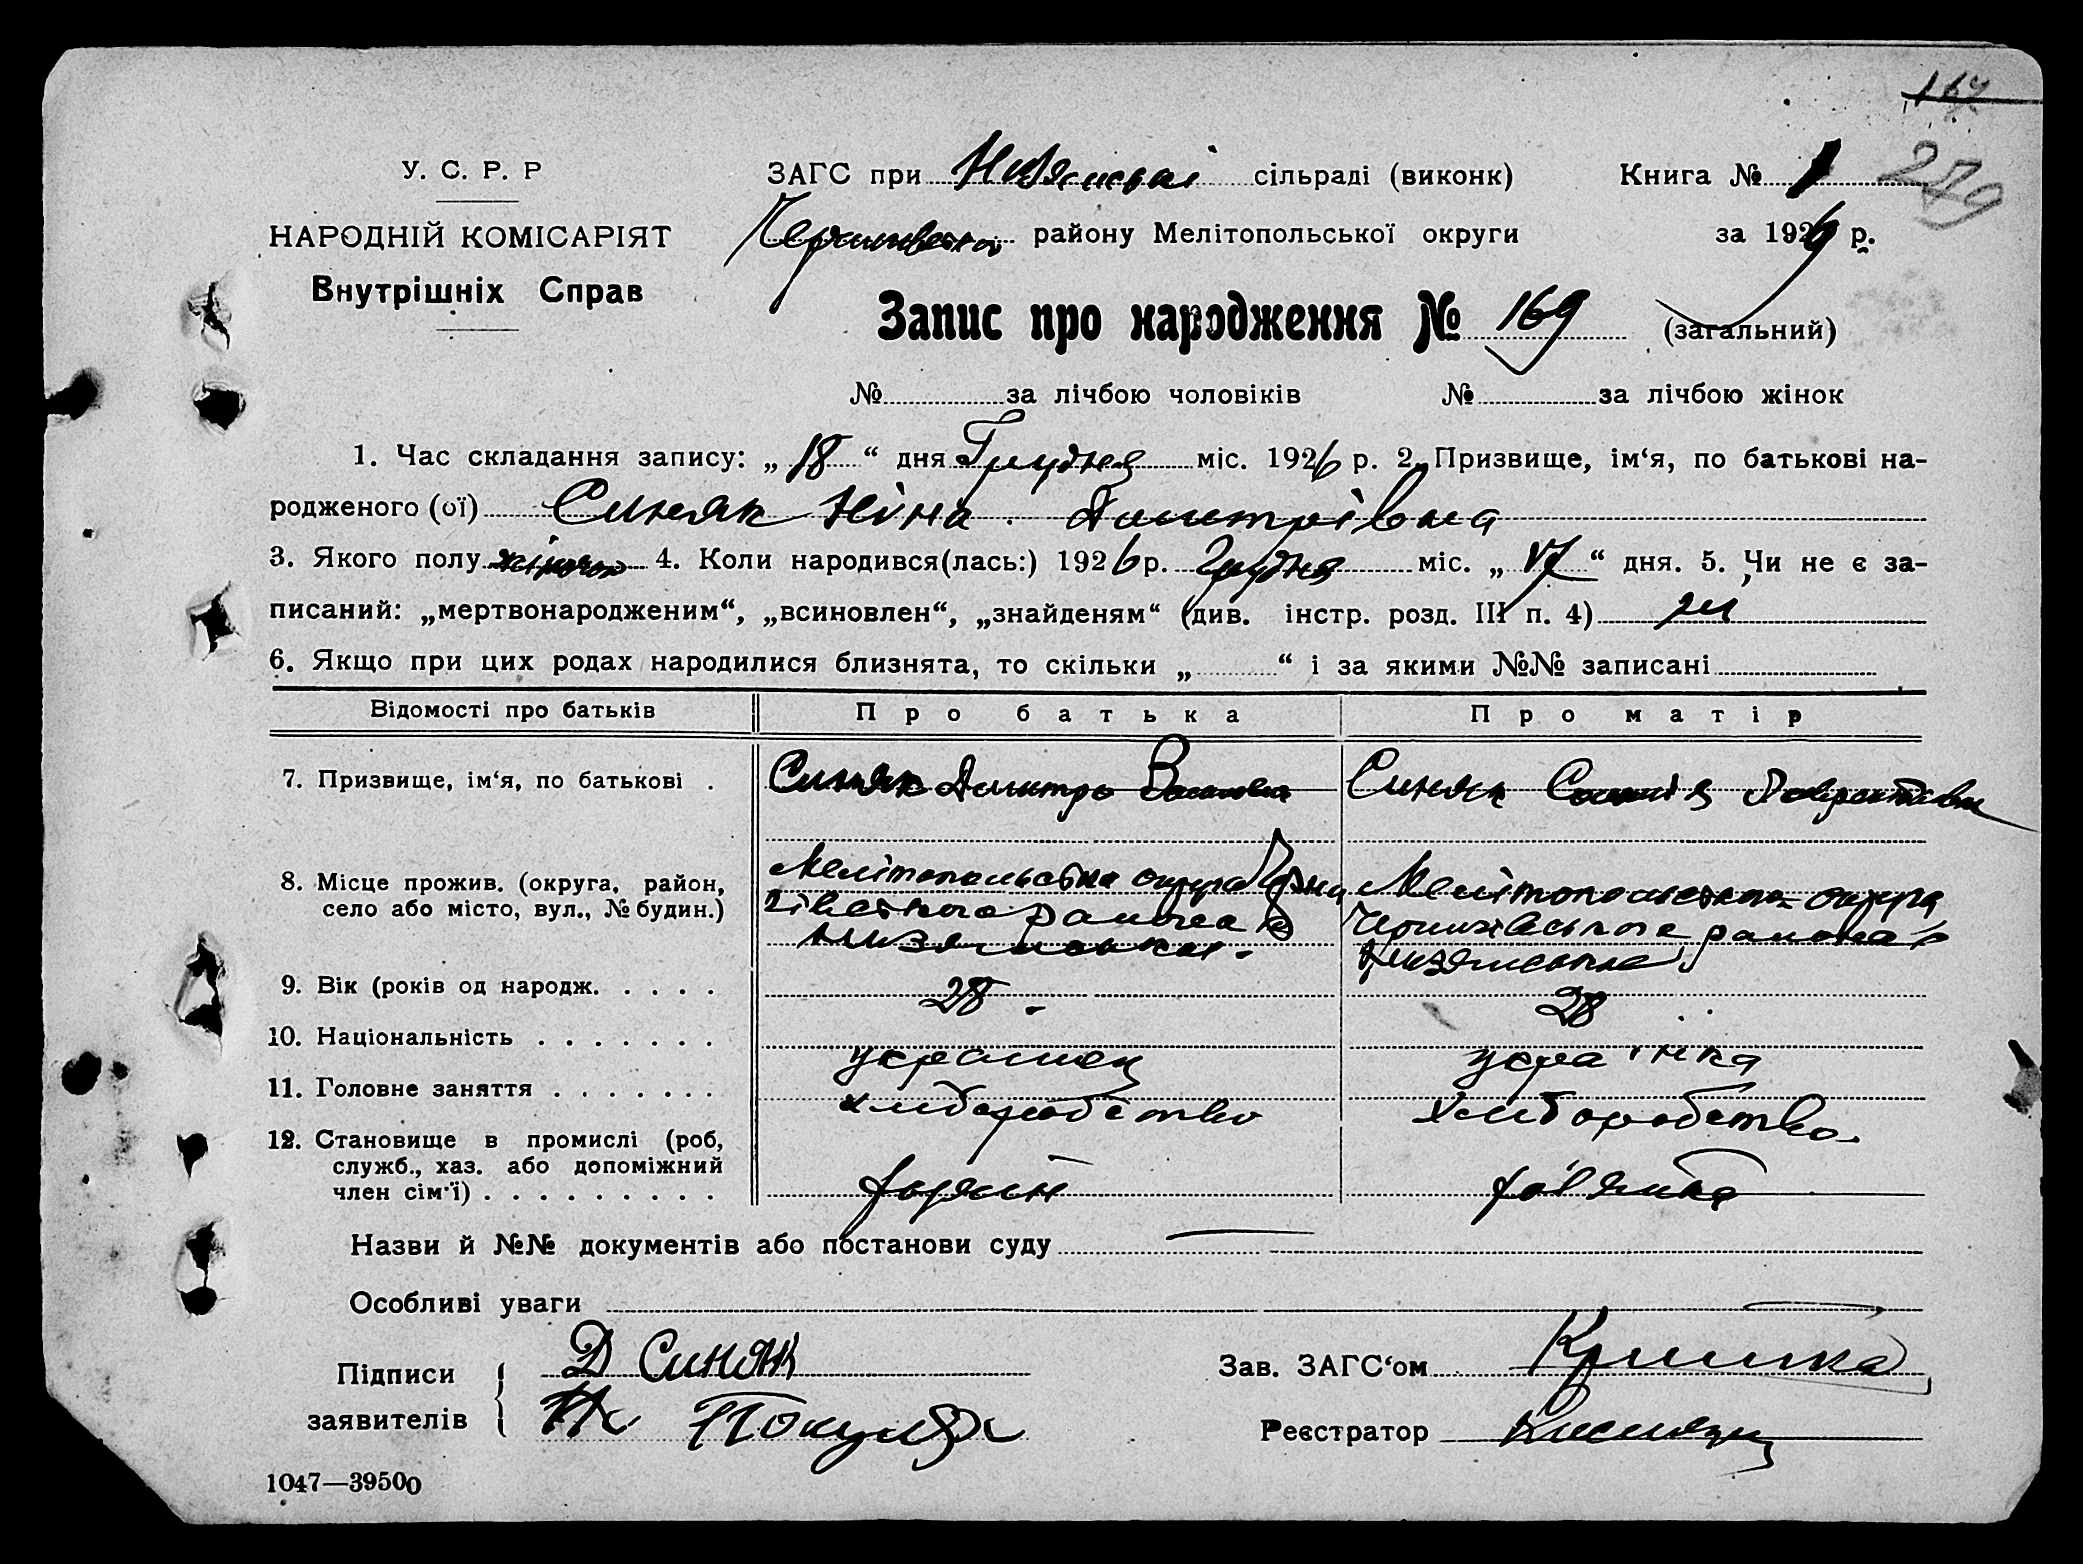 167
У. С. Р. Р
ЗАГС при сільраді (виконк)
Книга № 1
279
НАРОДНІЙ КОМІСАРІЯТ
району Мелітопольської округи
за 1926 р.
Внутрішніх Справ
Запис про народження № 169 (загальний)
№ за лічбою чоловіків № за лічбою жінок
1. Час складання запису: „ 18 “ дня Грудня міс. 1926 р. 2. Призвище, ім‘я, по батькові на-
родженого (ої) Синяк Ніна Дмитрівна
3. Якого полу жіночого 4. Коли народився(лась:) 1926 р. Грудня міс. „ 17 “ дня. 5. Чи не є за-
писаний: „мертвонародженим“, „всиновлен“, „знайденям“ (див. інстр. розд. III п. 4) ні
6. Якщо при цих родах народилися близнята, то скільки „ “ і за якими №№ записані
Відомості про батьків Про батька Про матір
7. Призвище, ім‘я, по батькові . Синяк Дмитро Синяк
8. Місце прожив. (округа, район,
село або місто, вул., № будин.)
Мелітопольська округа
району
Мелітопольська округа
района
9. Вік (років од народж. . . . . 28 28
10. Національність . . . . . . . українец українка
11. Головне заняття . . . . . . . хліборобство хліборобство
12. Становище в промислі (роб,
служб., хаз. або допоміжний
член сім‘ї) . . . . . . . . .
Назви й №№ документів або постанови суду
Особливі уваги
Підписи Д Синяк Зав. ЗАГС‘ом
заявителів Реєстратор
1047—39500